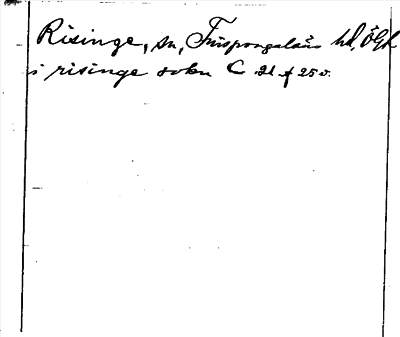 Risinge, sn, Finspongaläns hd, Ögl
i risinge sokn C 21 f 25 v.